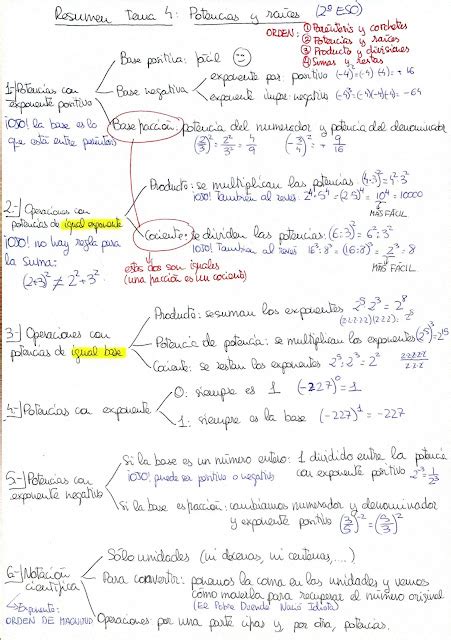 Resumen Tema 4: Potencias y raíces (2º ESO)
ORDEN: ① Paréntesis y corchetes
② Potencias y raíces
③ Producto y divisiones
④ Sumas y restas
1-) Potencias con exponente positivo
Base positiva: fácil
Base negativa
exponente par: positivo (-4)² = (-4)·(-4) = +16
exponente impar: negativo (-4)³ = (-4)(-4)(-4) = -64
¡OJO! la base es lo que está entre paréntesis
Base fracción: potencia del numerador y potencia del denominador
(2/3)² = 2²/3² = 4/9 (-3/4)² = + 9/16
2-) Operaciones con potencias de igual exponente
Producto: se multiplican las potencias (4·3)² = 4²·3²
¡OJO! También al revés 2⁴·5⁴ = (2·5)⁴ = 10⁴ = 10000
MÁS FÁCIL
Cociente: se dividen las potencias: (6:3)² = 6²:3²
¡OJO! También al revés 16³:8³ = (16:8)³ = 2³ = 8
MÁS FÁCIL
¡OJO! no hay regla para la suma:
(2+3)² ≠ 2² + 3²
estos dos son iguales
(una fracción es un cociente)
3-) Operaciones con potencias de igual base
Producto: se suman los exponentes 2⁵·2³ = 2⁸
(2·2·2·2·2)(2·2·2) = 2⁸
Potencia de potencia: se multiplican los exponentes (2⁵)³ = 2¹⁵
Cociente: se restan los exponentes 2⁵:2³ = 2²
4-) Potencias con exponente
0: siempre es 1 (-227)⁰ = 1
1: siempre es la base (-227)¹ = -227
5-) Potencias con exponente negativo
Si la base es un número entero: 1 dividido entre la potencia
¡OJO! puede ser positivo o negativo con exponente positivo 2⁻³ = 1/2³
Si la base es fracción: cambiamos numerador y denominador
y exponente positivo (3/5)⁻² = (5/3)²
6-) Notación científica
Sólo unidades (ni decenas, ni centenas, ....)
Para convertir: ponemos la coma en las unidades y vemos
cómo moverla para recuperar el número original
(El Pobre Duende Nació Idiota)
Exponente:
ORDEN DE MAGNITUD
Operaciones por una parte cifras y, por otra, potencias.